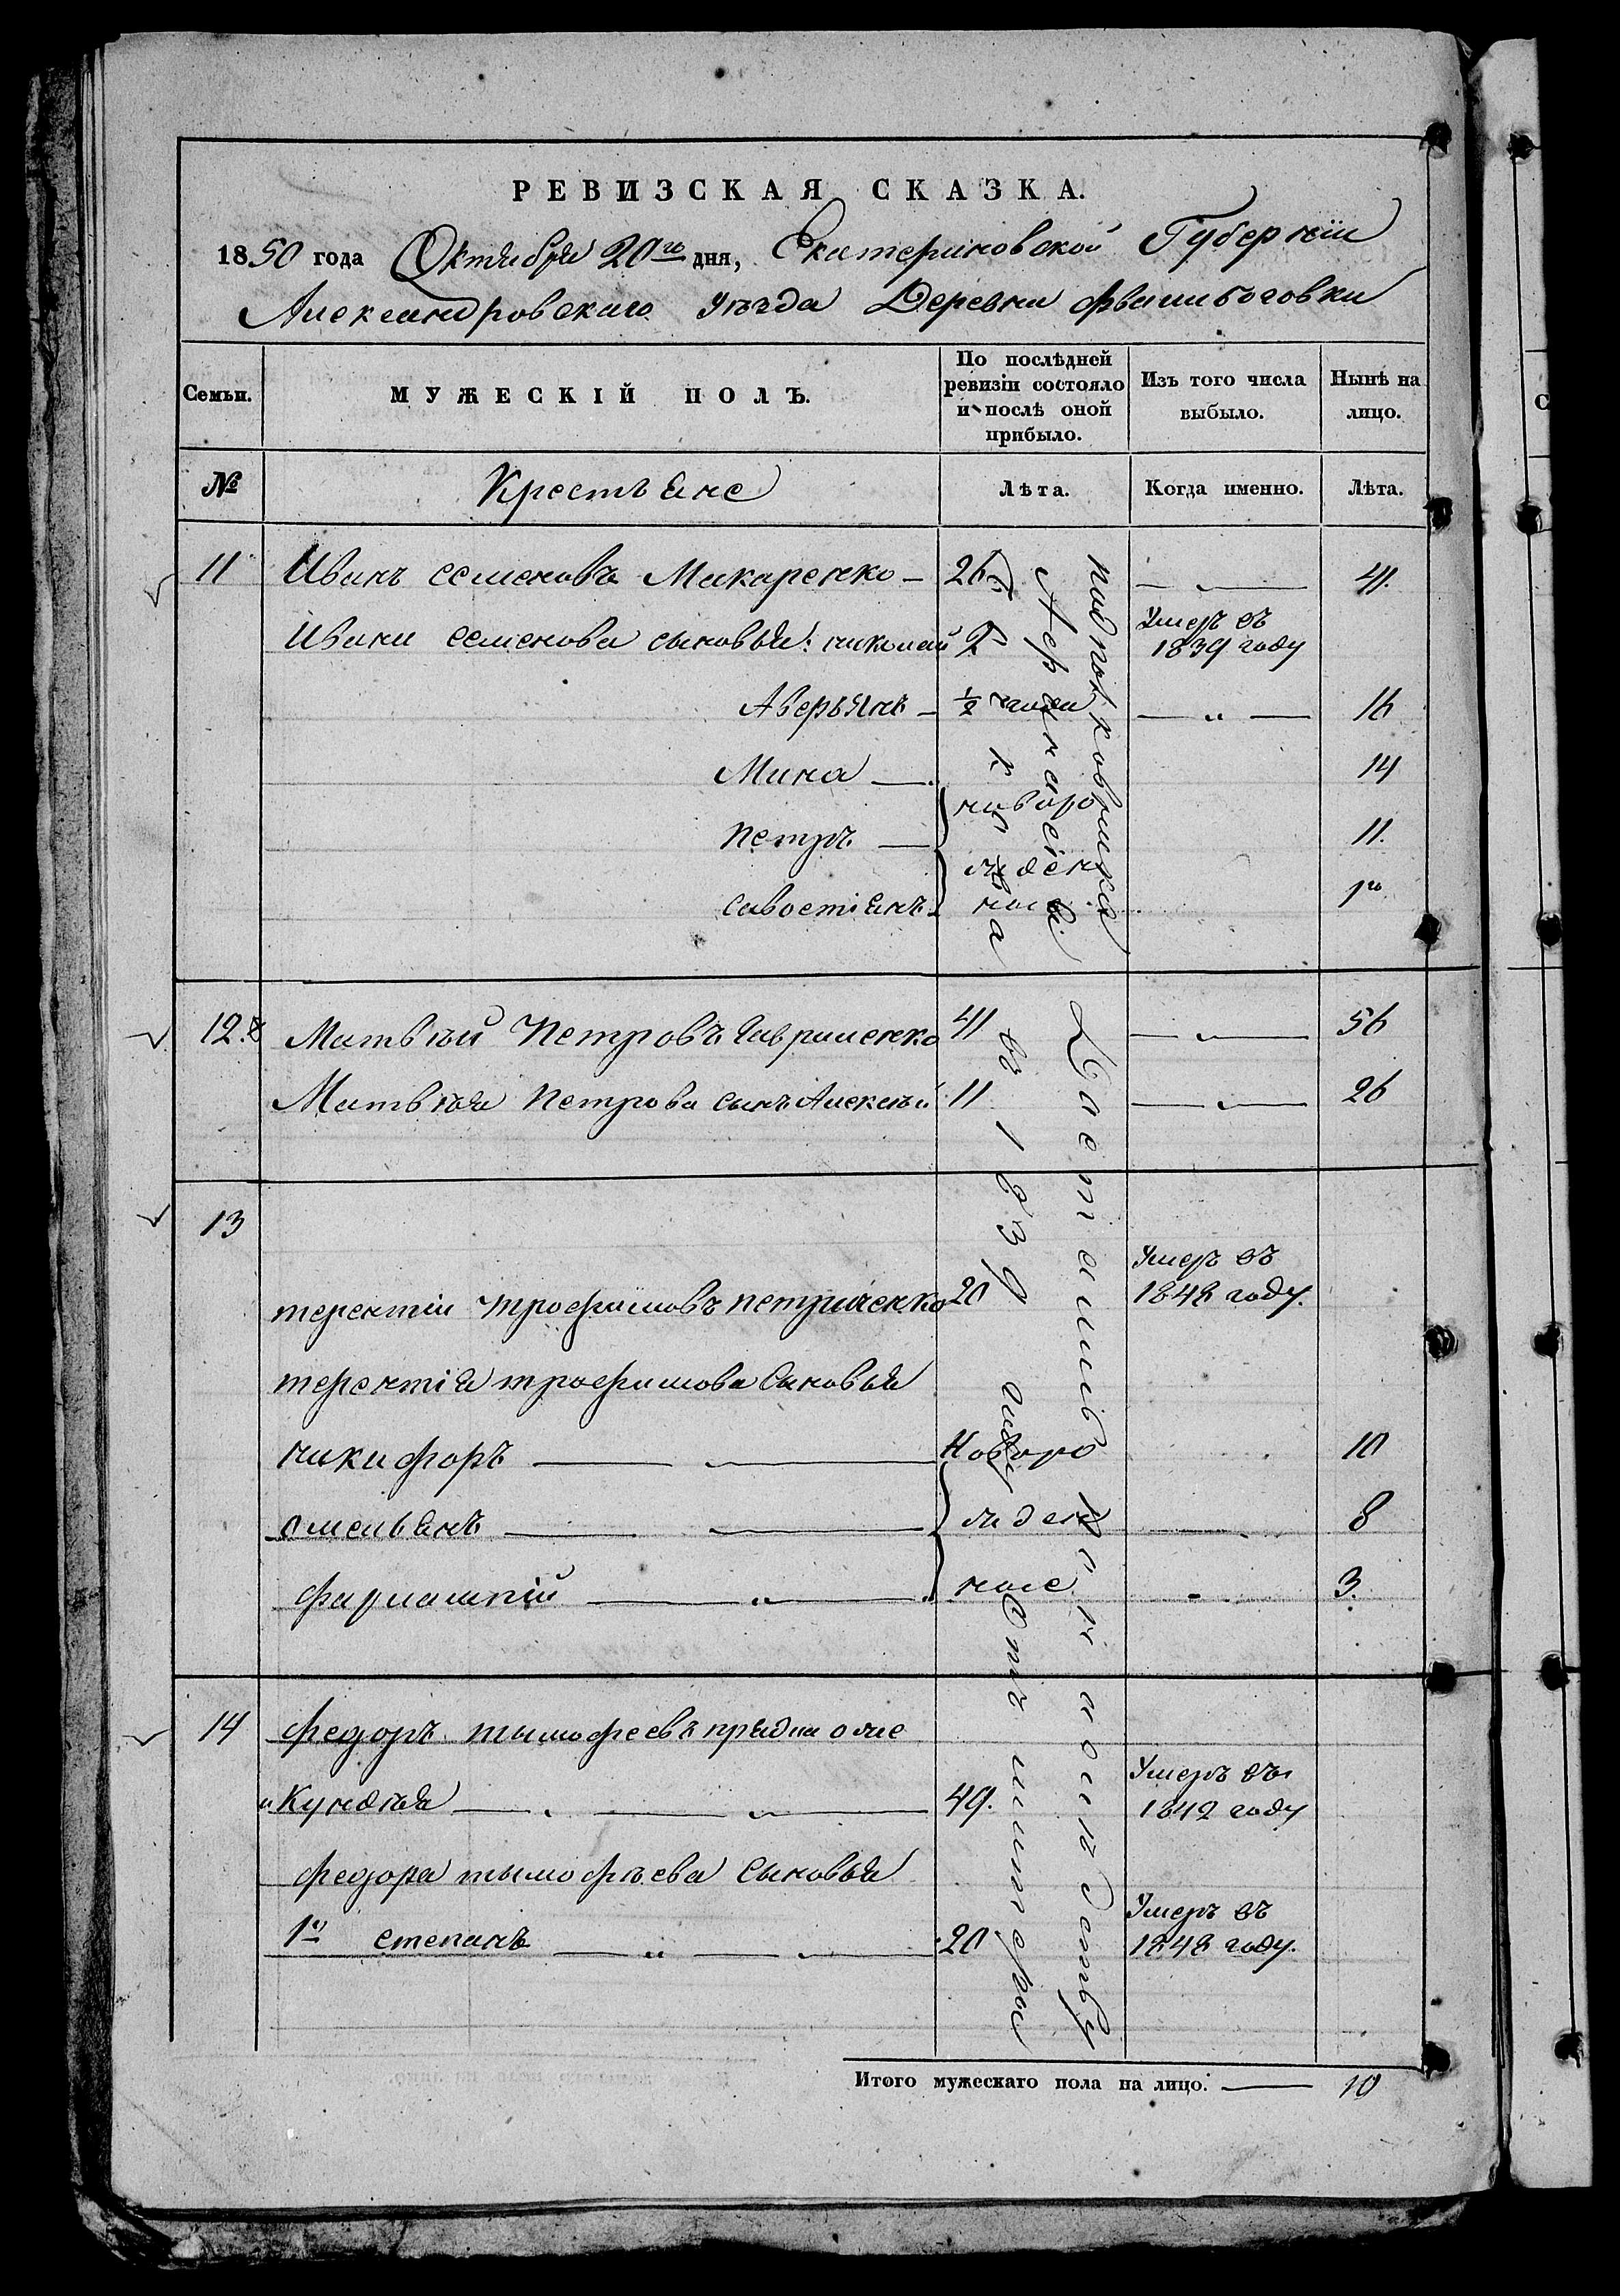 РЕВИЗСКАЯ СКАЗКА.
1850 года Октября 20го дня, Екатериновской Губернiи
Александровскаго уезда Деревни
Семьи.
МУЖЕСКІЙ ПОЛЪ.
По послѣдней ревизіи состояло и послѣ оной прибыло.
Изъ того числа выбыло.
Нынѣ на лицо.
№
Крестьяне
Лѣта.
Когда именно.
Лѣта.
11 Иванъ семеновъ Макаренко — 26 — „ — 41.
Ивана семенова сыновья: николай 2 Умеръ въ 1839 году
Аверьянъ — ½ года — „ — 16
Мина — 14
Петръ — новоро 11.
савостiянъ — жден ные 1го
12. Матвѣй Петровъ Гавриленко 41 — „ — 56
Матвѣя Петрова сынъ Алексѣй 11 — „ — 26
13
терентiи трофимовъ петриченко 20 Умеръ въ 1848 году.
терентiя трофимова сыновья
никифоръ — „ — Новоро 10
омельянъ — „ — жден 8
— „ — ные 3.
14 федоръ тымофеевъ
— „ — 49. Умеръ въ 1842 году
федора тымофѣева сыновья
1й степанъ — „ — 20 Умеръ въ 1848 году.
въ 1839 году
Итого мужескаго пола на лицо. — 10